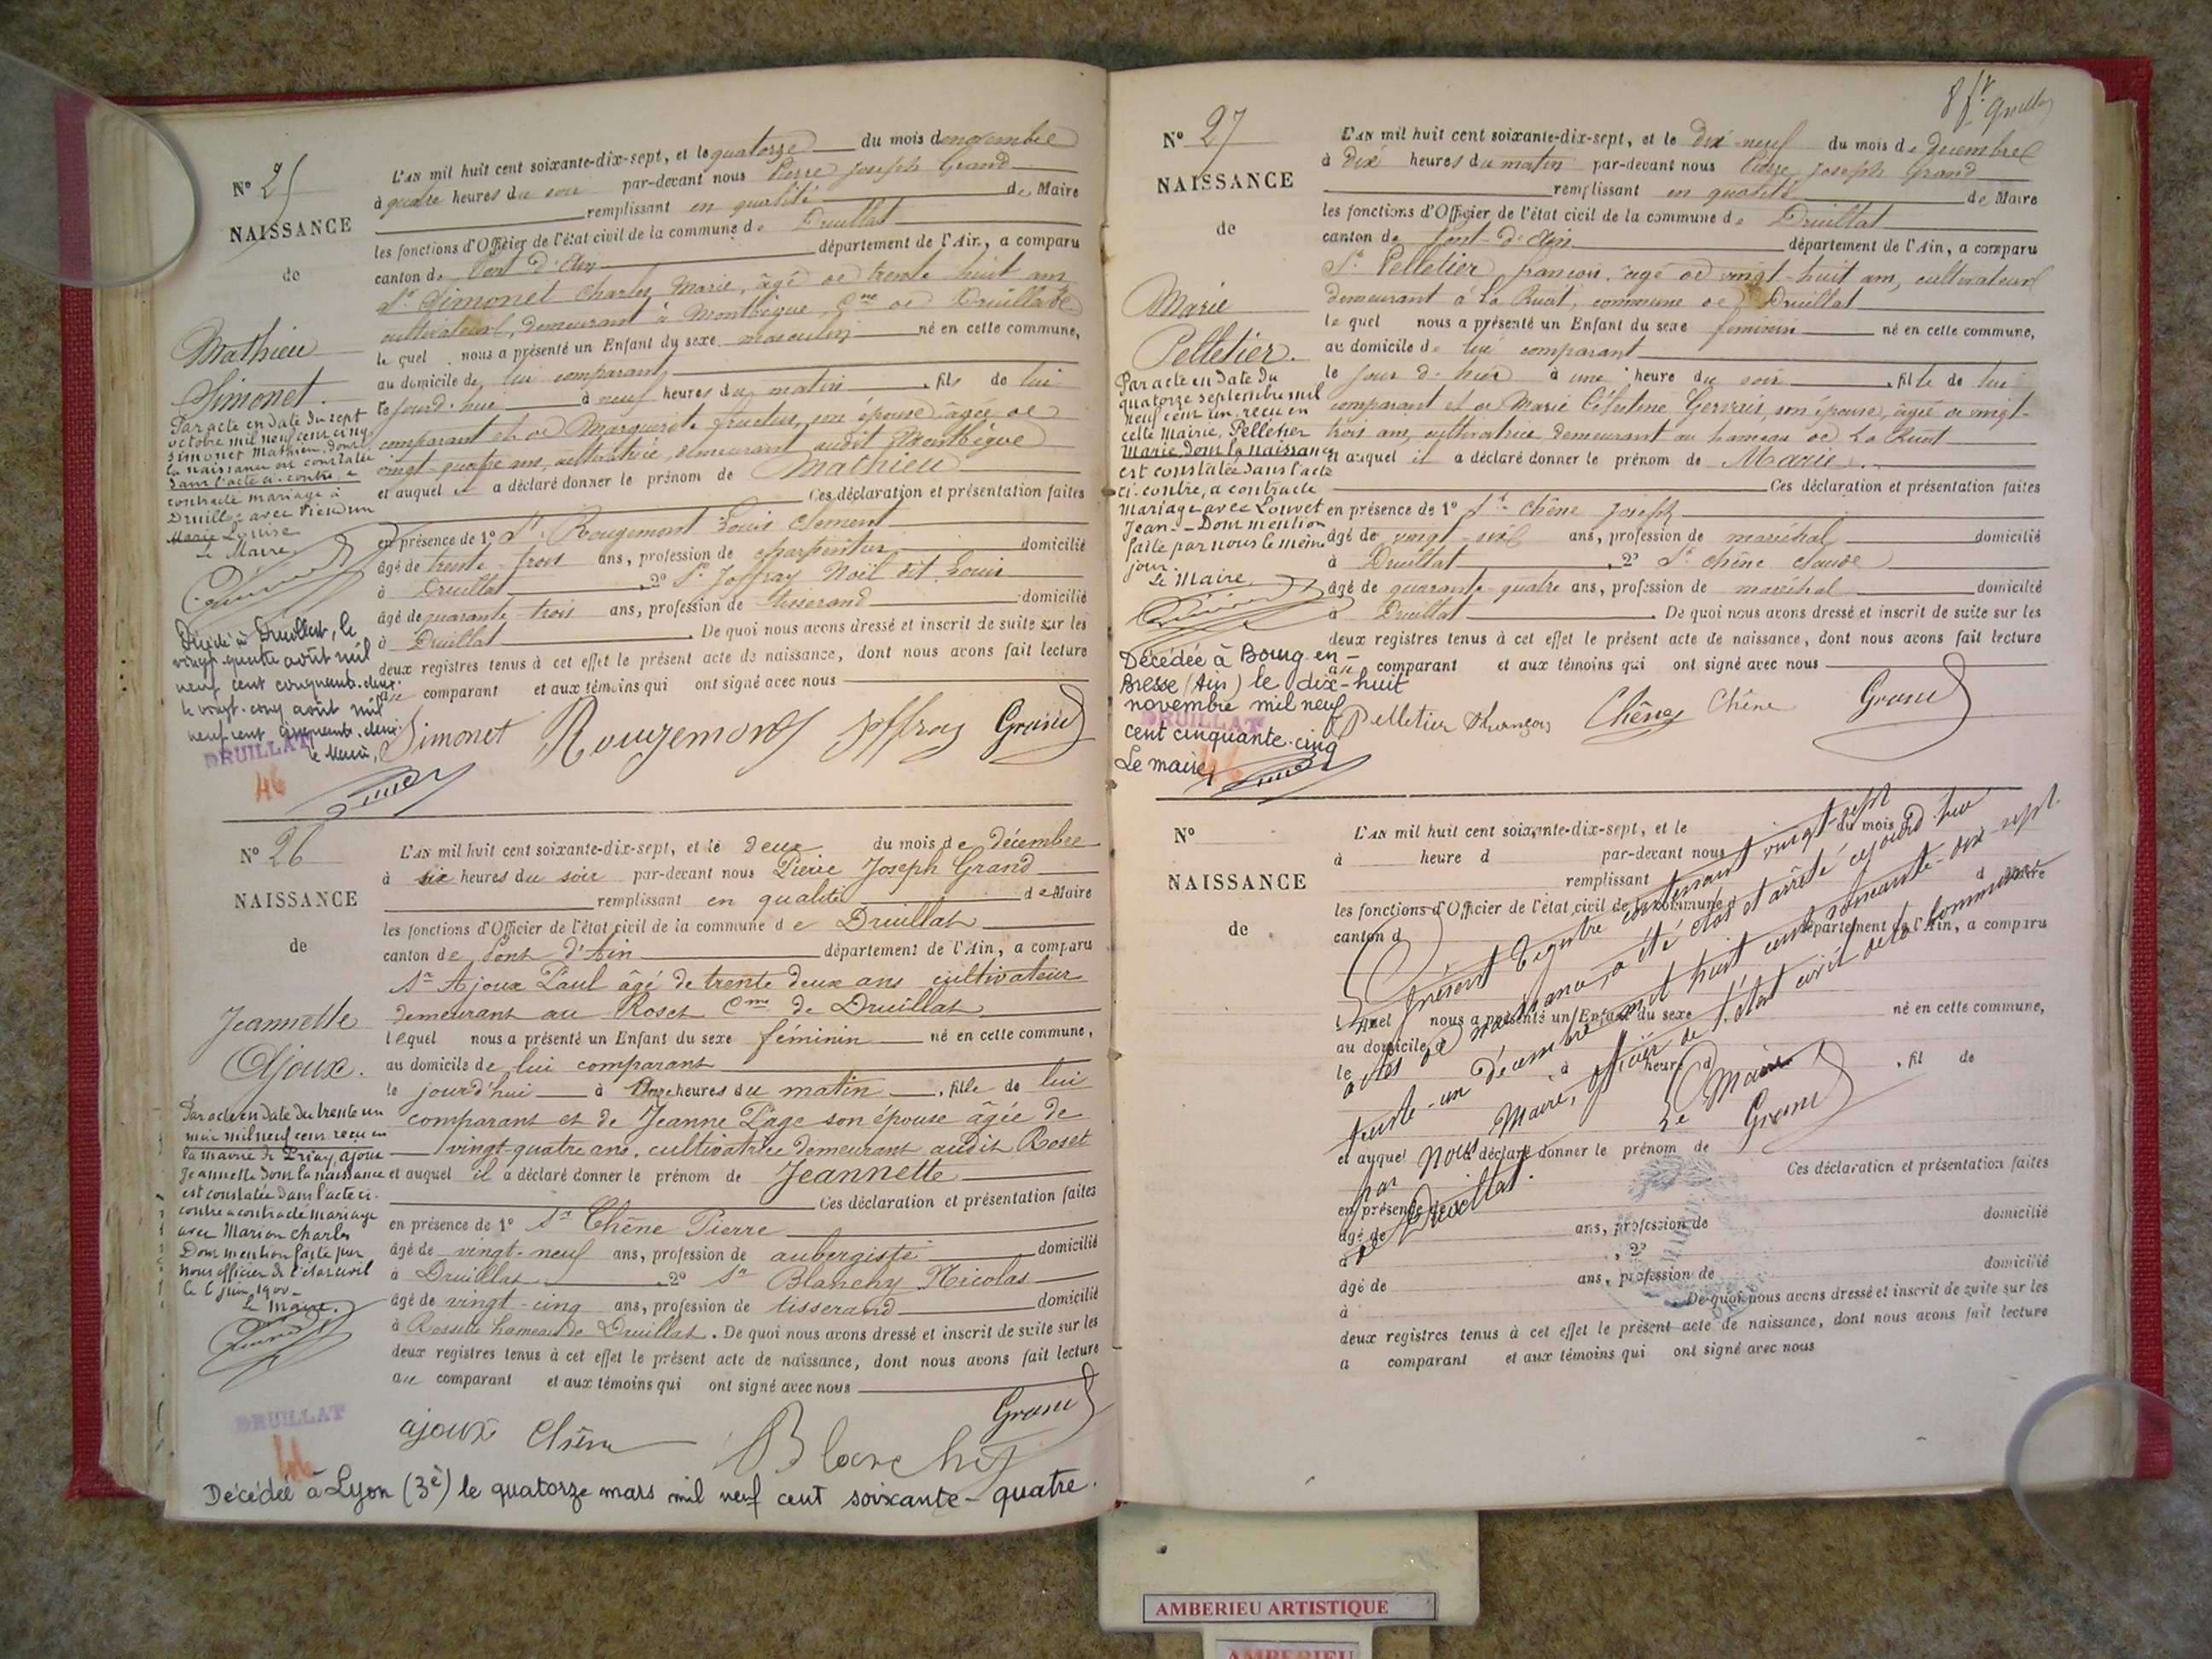 N° 25
NAISSANCE
de
Mathieu
Simonet.
Par acte en date du sept
octobre mil neuf cent cinq
Simonet Mathieu, dont
la naissance est constatée
dans l'acte ci-contre, a
contracté mariage à
Druillat avec
Marie Louise
Le Maire,
Décédé à Druillat, le
vingt-quatre août mil
neuf cent cinquante-deux
le vingt-cinq août mil
neuf cent cinquante-deux
le Maire,
DRUILLAT
46
L'AN mil huit cent soixante-dix-sept, et le quatorze du mois de novembre
à quatre heures du soir par-devant nous Pierre Joseph Grand
remplissant en qualité de Maire
les fonctions d'Officier de l'état civil de la commune de Druillat
canton de Pont d'Ain département de l'Ain, a comparu
Sr Simonet Charles Marie, âgé de trente huit ans
cultivateur, demeurant à Montbègue, Cne de Druillat
le quel nous a présenté un Enfant du sexe masculin né en cette commune,
au domicile de lui comparant
le jourd'hui à neuf heures du matin, fils de lui
comparant et de Marguerite son épouse âgée de
vingt-quatre ans, cultivatrice, demeurant audit Montbègue
et auquel il a déclaré donner le prénom de Mathieu
Ces déclaration et présentation faites
en présence de 1° Sr Rougemont Louis Clement
âgé de trente-trois ans, profession de charpentier domicilié
à Druillat, 2° Sr Joffray Noël dit Louis
âgé de quarante-trois ans, profession de tisserand domicilié
à Druillat. De quoi nous avons dressé et inscrit de suite sur les
deux registres tenus à cet effet le présent acte de naissance, dont nous avons fait lecture
au comparant et aux témoins qui ont signé avec nous
Simonet Rougemont Joffray Grand
N° 26
NAISSANCE
de
Jeannette
Ajoux.
Par acte en date du trente un
mai mil neuf cent reçu en
la mairie de Priay, Ajoux
Jeannette dont la naissance
est constatée dans l'acte ci-
contre a contracté mariage
avec Marion Charles
Dont mention faite par
nous officier de l'état civil
le 6 juin 1900-
Le Maire.
DRUILLAT
46
L'AN mil huit cent soixante-dix-sept, et le deux du mois de décembre
à six heures du soir par-devant nous Pierre Joseph Grand
remplissant en qualité de Maire
les fonctions d'Officier de l'état civil de la commune de Druillat
canton de Pont d'Ain département de l'Ain, a comparu
Sr Ajoux Paul âgé de trente deux ans cultivateur
demeurant au Roset Cne de Druillat
lequel nous a présenté un Enfant du sexe féminin né en cette commune,
au domicile de lui comparant
le jourd'hui à onze heures du matin, fille de lui
comparant et de Jeanne Page son épouse âgée de
vingt-quatre ans, cultivatrice demeurant audit Roset
et auquel il a déclaré donner le prénom de Jeannette
Ces déclaration et présentation faites
en présence de 1° Sr Chêne Pierre
âgé de vingt-neuf ans, profession de aubergiste domicilié
à Druillat, 2° Sr Blanchy Nicolas
âgé de vingt-cinq ans, profession de tisserand domicilié
à hameau de Druillat. De quoi nous avons dressé et inscrit de suite sur les
deux registres tenus à cet effet le présent acte de naissance, dont nous avons fait lecture
au comparant et aux témoins qui ont signé avec nous
ajoux Chêne Blanchy Grand
Décédée à Lyon (3è) le quatorze mars mil neuf cent soixante-quatre.
N° 27
NAISSANCE
de
Marie
Pelletier.
Par acte en date du
quatorze septembre mil
neuf cent un reçu en
cette Mairie, Pelletier
Marie dont la naissance
est constatée dans l'acte
ci-contre, a contracté
mariage avec Louvet
Jean - Dont mention
faite par nous le même
jour.
Le Maire.
Décédée à Bourg-en-
Bresse (Ain) le dix-huit
novembre mil neuf
cent cinquante-cinq
Le maire,
DRUILLAT
46
L'AN mil huit cent soixante-dix-sept, et le dix-neuf du mois de décembre
à dix heures du matin par-devant nous Pierre Joseph Grand
remplissant en qualité de Maire
les fonctions d'Officier de l'état civil de la commune de Druillat
canton de Pont-d'Ain département de l'Ain, a comparu
Sr Pelletier françois âgé de vingt-huit ans, cultivateur
demeurant à La Ruat, commune de Druillat
le quel nous a présenté un Enfant du sexe féminin né en cette commune,
au domicile de lui comparant
le jour d'hier à une heure du soir, fille de lui
comparant et de Marie Célestine Gervais, son épouse, âgée de vingt-
trois ans, cultivatrice demeurant au hameau de La Ruat
et auquel il a déclaré donner le prénom de Marie.
Ces déclaration et présentation faites
en présence de 1° Sr Chêne Joseph
âgé de vingt-six ans, profession de maréchal domicilié
à Druillat, 2° Sr Chêne Claude
âgé de quarante-quatre ans, profession de maréchal domicilié
à Druillat. De quoi nous avons dressé et inscrit de suite sur les
deux registres tenus à cet effet le présent acte de naissance, dont nous avons fait lecture
au comparant et aux témoins qui ont signé avec nous
Pelletier François Chêne Chêne Grand
N°
NAISSANCE
de
L'AN mil huit cent soixante-dix-sept, et le du mois d
à heure d par-devant nous
remplissant d Maire
les fonctions d'Officier de l'état civil de la commune d
canton d département de l'Ain, a comparu
l quel nous a présenté un Enfant du sexe né en cette commune,
au domicile d
le à heure d, fil de
et auquel déclaré donner le prénom de
Ces déclaration et présentation faites
en présence de
âgé de ans, profession de domicilié
à, 2°
âgé de ans, profession de domicilié
à De quoi nous avons dressé et inscrit de suite sur les
deux registres tenus à cet effet le présent acte de naissance, dont nous avons fait lecture
a comparant et aux témoins qui ont signé avec nous
Le présent registre contenant vingt-sept
actes de naissance, a été clos et arrêté cejourd'hui
trente-un décembre mil huit cent soixante-dix-sept.
par Nous Maire, officier de l'état civil de la commune
de Druillat.
Le Maire
Grand
AMBERIEU ARTISTIQUE
AMBERIEU